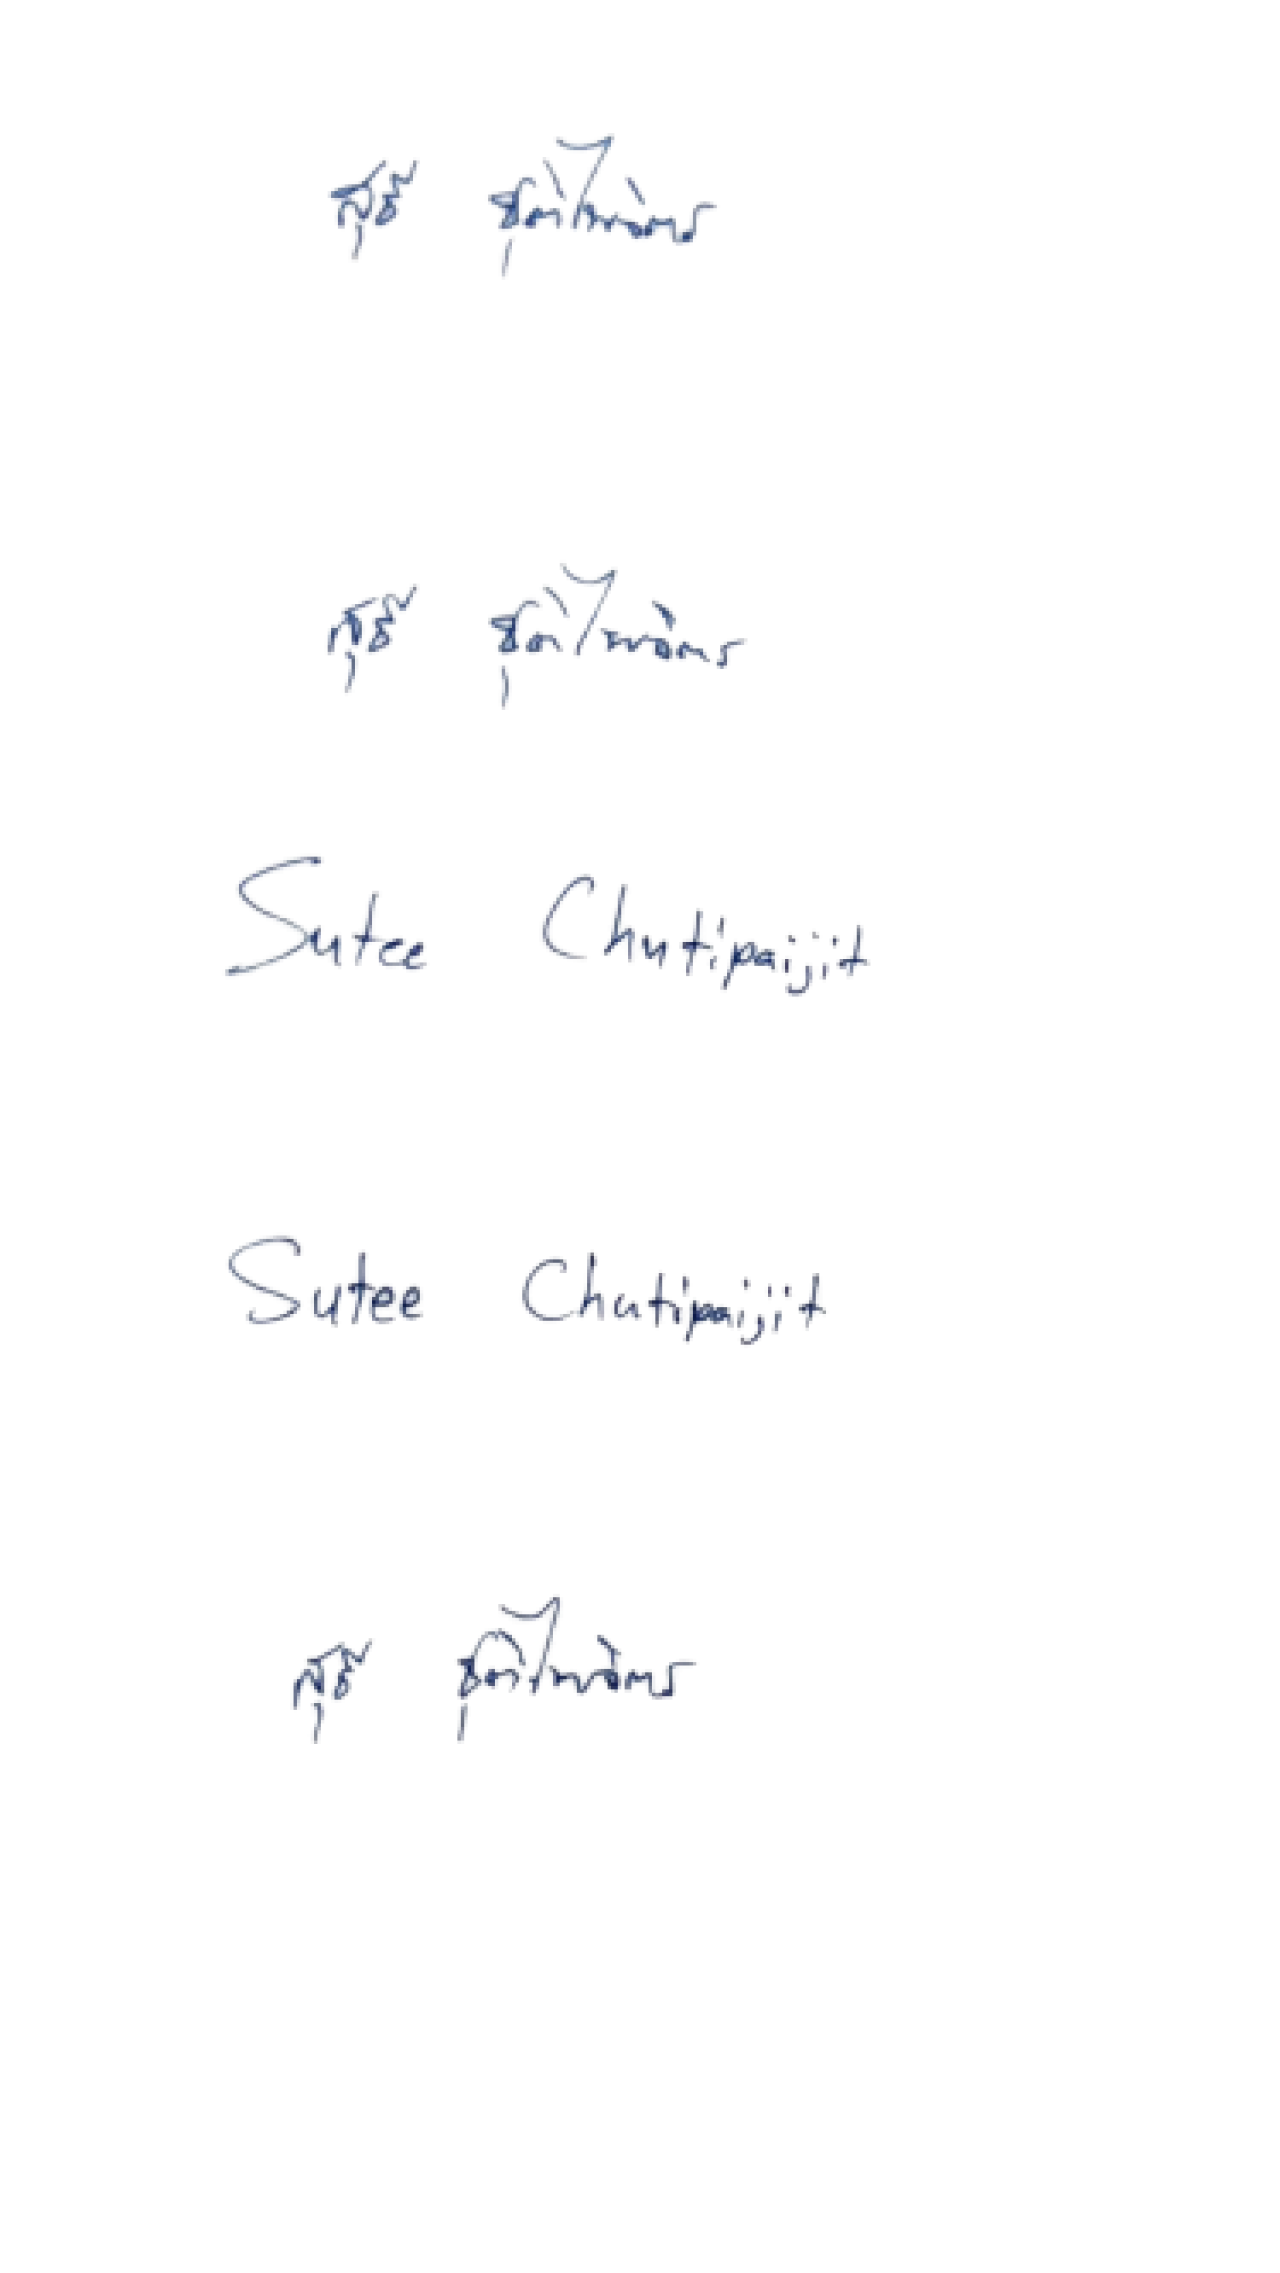 สุธี ชุติไพจิตร
สุธี ชุติไพจิตร
Sutee Chutipaijit
Sutee Chutipaijit
สุธี ชุติไพจิตร